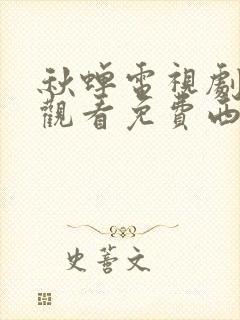 秋蟬電視劇
觀看免費西
史薈文